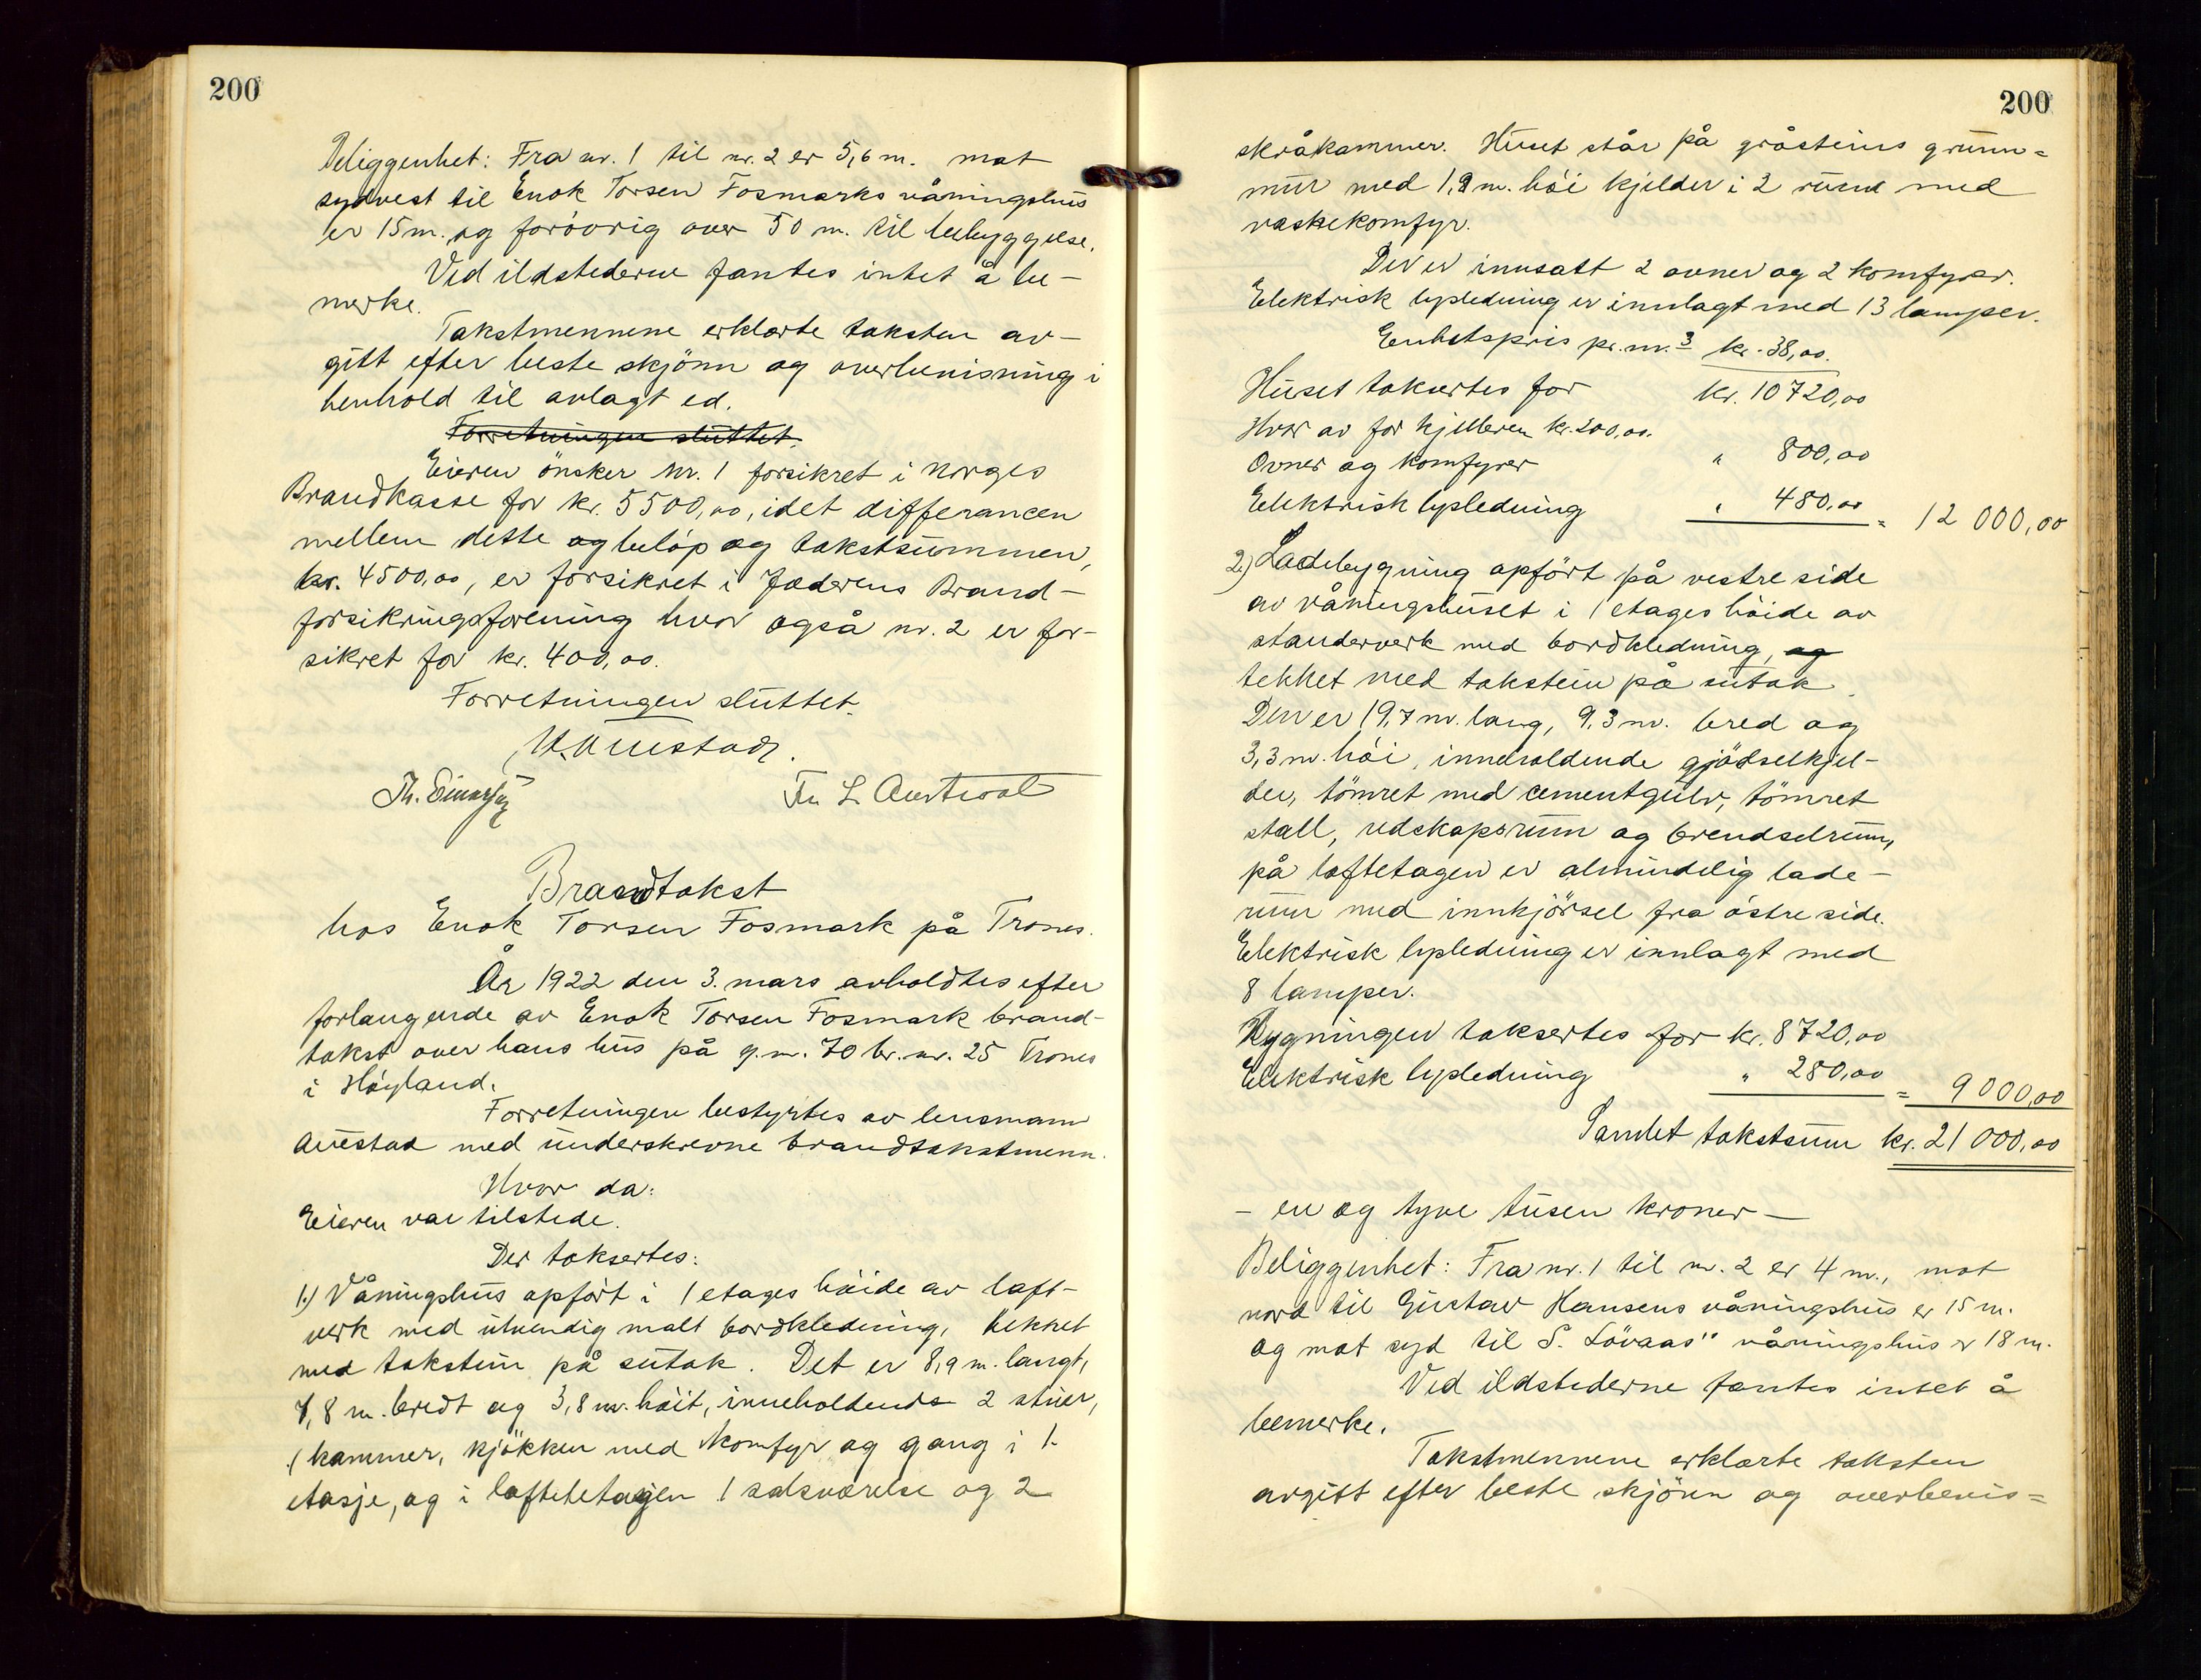 200
Beliggenhet: Fra nr. 1 til nr. 2 er 5,6 m. mot
sydvest til Enok Torsen Fosmarks våningshus
er 15 m. og forövrig over 50 m. til bebyggelse.
Ved ildstederne fantes intet å be-
merke.
Takstmennene erklærte taksten av-
gitt efter beste skjönn og overbevisning i
henhold til avlagt ed.
Forretningen sluttet.
Eieren önsker nr. 1 forsikret i Norges
Brandkasse for kr. 5500,00, idet differancen
mellem dette og belöp og takstsummen,
kr. 4500,00, er forsikret i Jæderens Brand-
forsikringsforening hvor også nr. 2 er for-
sikret for kr. 400,00.
Forretningen sluttet.
Auestad.
Th. Einarsen
L. Austvoll
Brandtakst
hos Enok Torsen Fosmark på Trones.
År 1922 den 3. mars avholdtes efter
forlangende av Enok Torsen Fosmark brand-
takst over hans hus på g.nr. 70 br. nr. 25 Trones
i Höyland.
Forretningen bestyrtes av lensmann
Auestad med underskrevne brandtakstmenn.
Hvor da:
Eieren var tilstede.
Der taksertes:
1.) Våningshus opfört i 1 etages höide av laft-
verk med utvendig malt bordkledning, tekket
med takstein på sutak. Det er 8,9 m. langt,
7,8 m. bredt og 3,8 m. höit, inneholdende 2 stuer,
1 kammer, kjökken med komfyr og gang i 1.
etasje, og i loftetetagen 1 salsværelse og 2
200
skråkammer. Huset står på gråsteins grunn=
mur med 1,9 m. höi kjelder i 2 rum med
vaskekomfyr.
Der er innsatt 2 ovner og 2 komfyrer.
Elektrisk lysledning er innlagt med 13 lamper.
Enhetspris pr. m.3 kr. 38,00.
Huset taksertes for kr. 10720,00
Hvor av for kjelleren kr. 200,00.
Ovner og komfyrer " 800,00
Elektrisk lysledning " 480,00 = 12 000,00
2.) Ladebygning opfört på vestre side
av våningshuset i 1 etages höide av
standerverk med bordkledning, og
tekket med takstein på sutak.
Den er 19,7 m. lang, 9,3 m. bred og
3,3 m. höi, inneholdende gjödselkjel-
der, tömret med cementgulv, tömret
stall, redskapsrum og brendselrum,
på loftetagen er almindelig lade-
rum med innkjörsel fra östre side.
Elektrisk lysledning er innlagt med
8 lamper.
Bygningen taksertes for kr. 8720,00
Elektrisk lysledning " 280,00 = 9 000,00
Samlet takstsum kr. 21 000,00
- en og tyve tusen kroner -
Beliggenhet: Fra nr. 1 til nr. 2 er 4 m., mot
nord til Gustav Hansens våningshus er 15 m.
og mot syd til S. Lövaas" våningshus er 18 m.
Ved ildstederne fantes intet å
bemerke.
Takstmennene erklærte taksten
avgitt efter beste skjönn og overbevis=